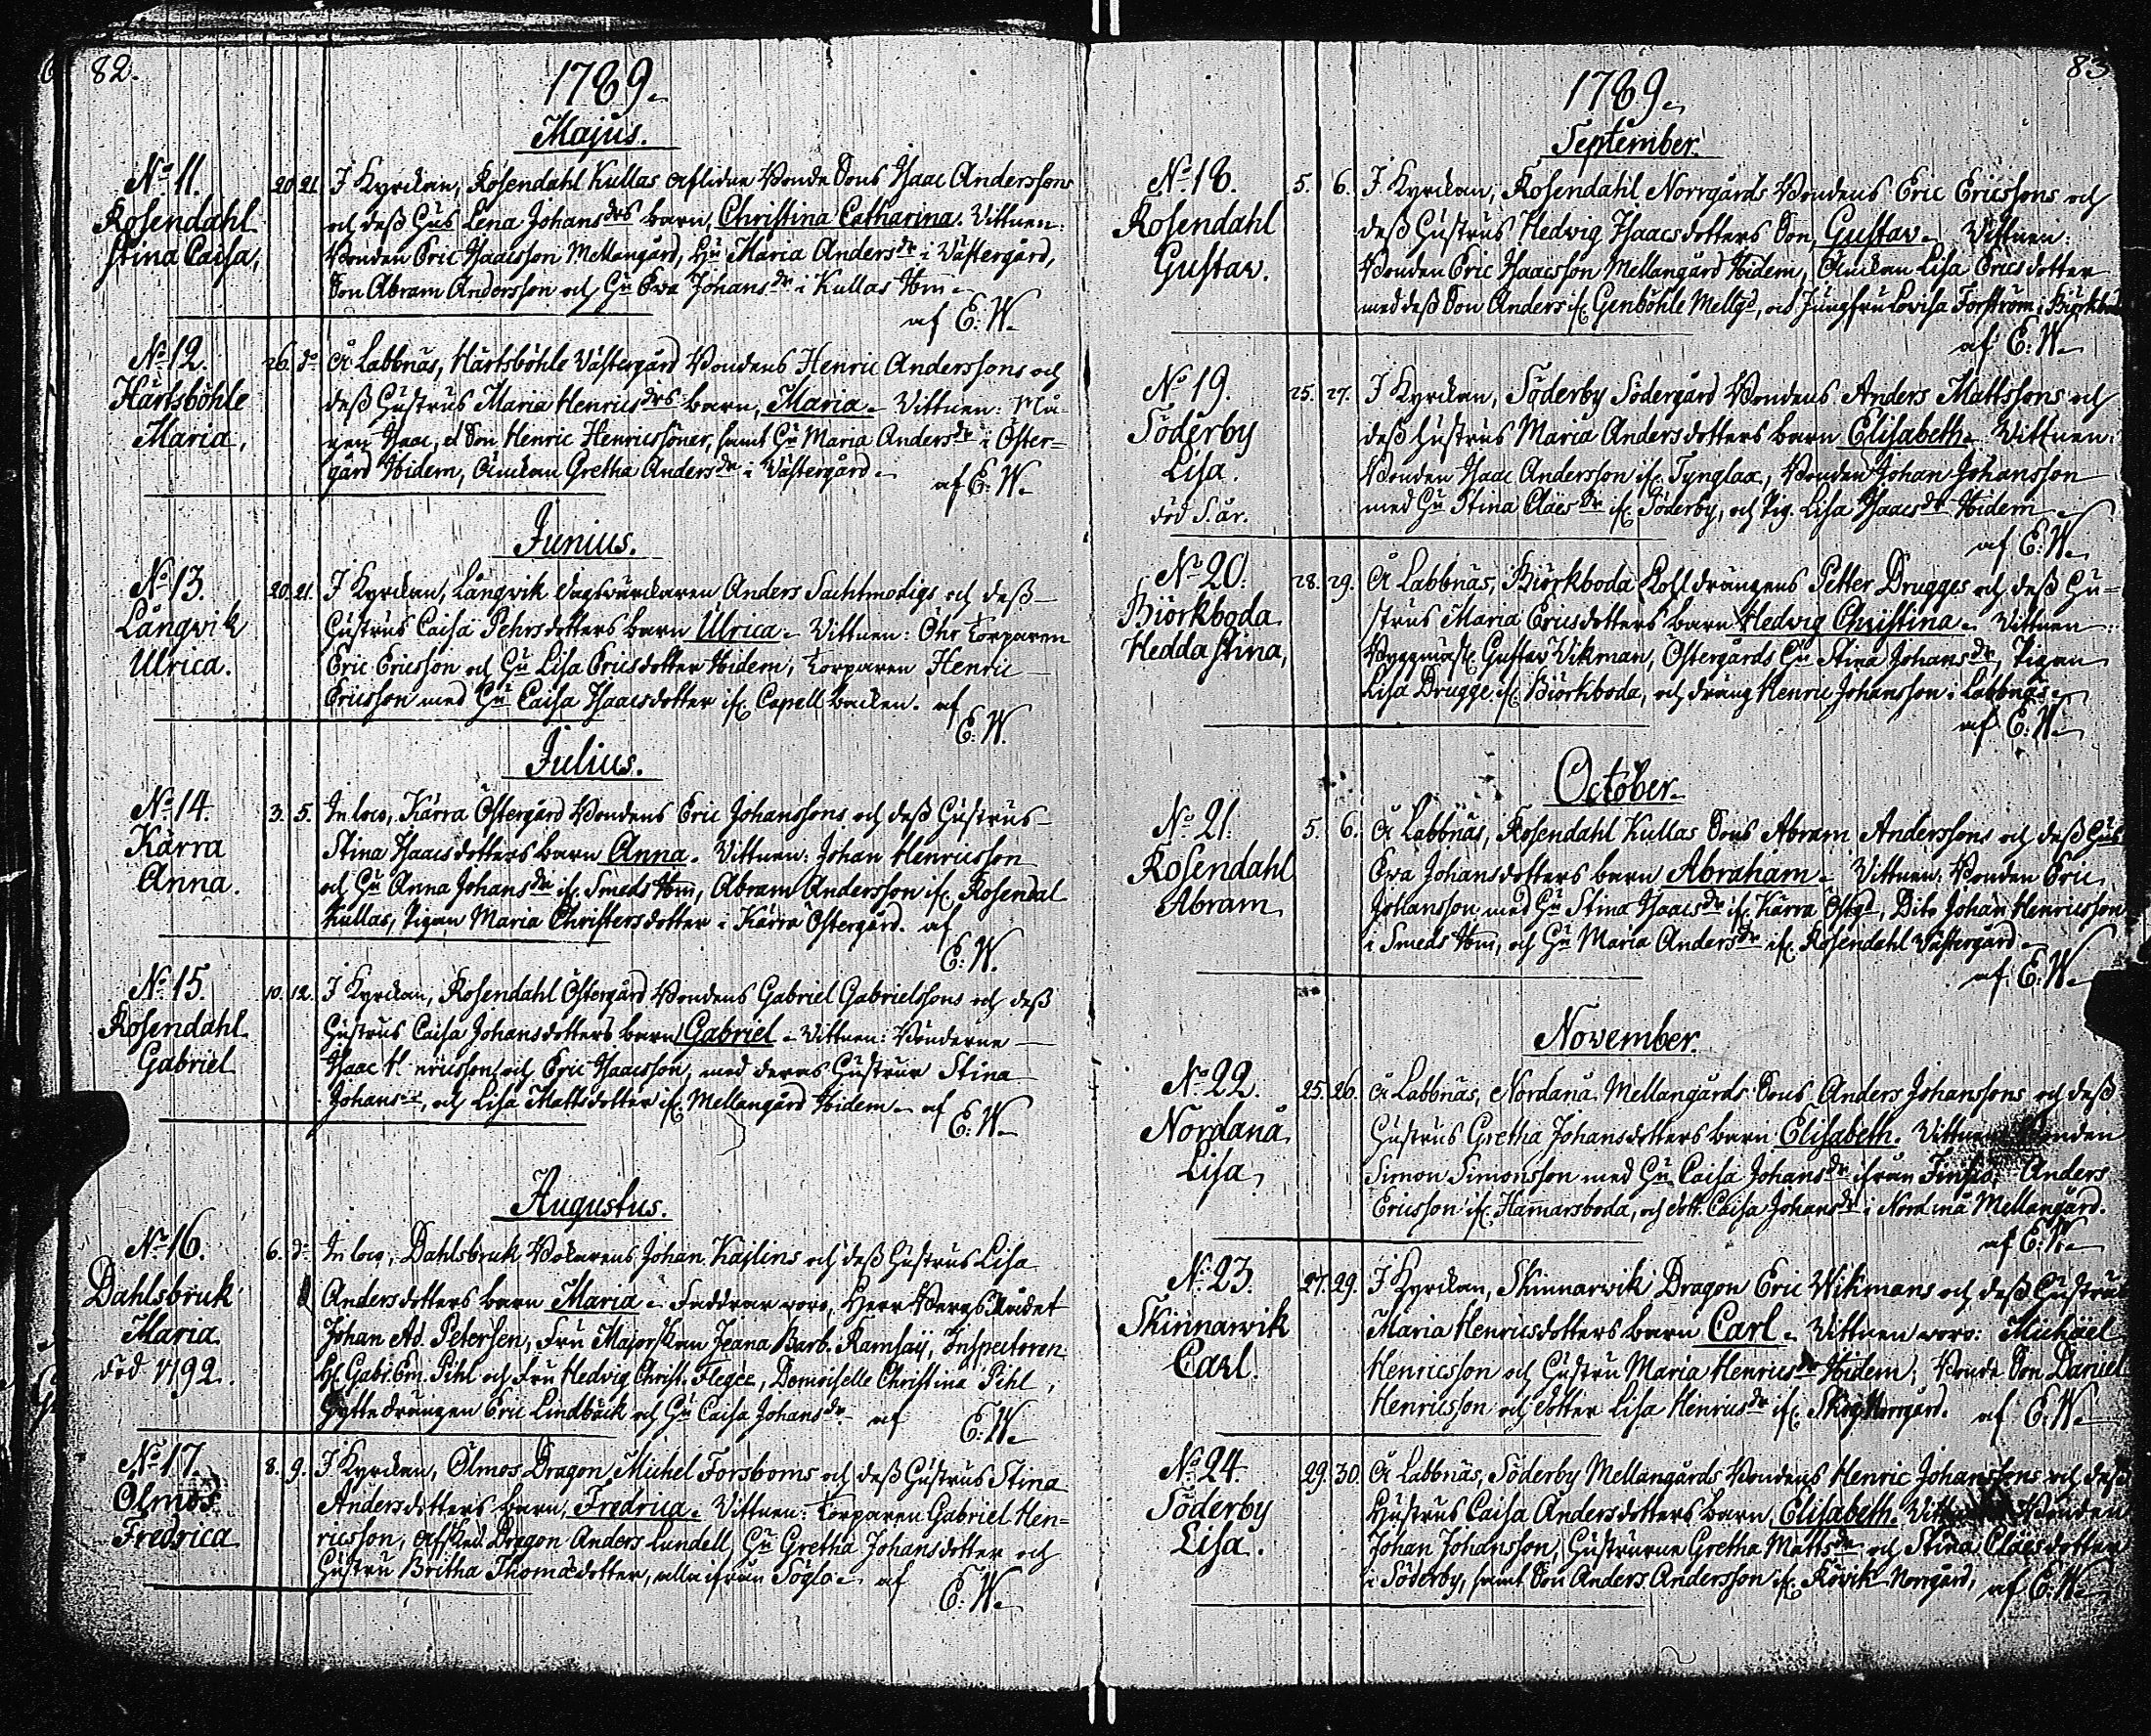 82.
1789.
Majus.
No 11.
Rosendahl
Stina Caisa,
20. 21. I Kyrckan, Rosendahl Kullas aflidne Bonde Sons Isaac Anderssons
och dess Hus Lena Johans drs barn, Christina Catharina. Vittnen:
Bonden Eric Isaacsson Mellangård, Hu Maria Anders dr i Västergård,
Son Abram Andersson och Hu Eva Johans dr i Kullas Ibm
af E: W.
No 12.
Härtsböhle
Maria,
26. do Å Labbnäs, Härtsböhle Västergård Bondens Henric Anderssons och
dess Hustrus Maria Henrics drs barn, Maria. Vittnen: Må-
gen Isaac, Son Henric Henricssöner, samt Hu Maria Anders dr i Öster-
gård Ibidem, Änckan Gretha Anders dr i Västergård.
af E: W.
Junius.
No 13.
Långvik
Ulrica.
20. 21. I Kyrckan, Långvik Dagsvärckaren Anders Sachtmodigs och dess
Hustrus Caisa Pehrsdotters barn Ulrica. Vittnen: Torparen
Eric Ericsson och Hu Lisa Ericsdotter Ibidem, Torparen Henric
Ericsson med Hu Caisa Isaacsdotter if. Capell backen. af
E: W.
Julius.
No 14.
Kärra
Anna.
3. 5. In loco, Kärra Östergård Bondens Eric Johanssons och dess Hustrus
Stina Isaacsdotters barn Anna. Vittnen: Johan Henricsson
och Hu Anna Johans dr if. Smeds Ibm, Abram Andersson if. Rosendal
Kullas, Pigan Maria Christersdotter i Kärra Östergård. af
E: W.
No 15.
Rosendahl
Gabriel
10. 12. I Kyrckan, Rosendahl Östergård Bondens Gabriel Gabrielssons och dess
Hustrus Caisa Johansdotters barn Gabriel. Vittnen: Bönderne
Isaac Henricsson och Eric Isaacsson, med deras Hustrur Stina
Johans dr, och Lisa Mattsdotter if. Mellangård Ibidem. af
E: W.
Augustus.
No 16.
Dahlsbruk
Maria
död 1792.
6. do In loco, Dahlsbruk Bokarens Johan Kajlins och dess Hustrus Lisa
Andersdotters barn Maria. Faddrar voro, Herr Bergs Rådet
Johan Ad. Petersen, Fru Majorskan Jeana Barb. Ramsay, Inspectoren
Hr Gabr. Em. Pihl och Fru Hedvig Christ. Flegée, Demoiselle Christina Pihl,
Hyttedrängen Eric Lindbäck och Hu Caisa Johans dr af
E: W.
No 17.
Ölmos
Fredrica
8. 9. I Kyrckan, Ölmos Dragon Michel Forsboms och dess Hustrus Stina
Andersdotters barn, Fredrica. Vittnen: Torparen Gabriel Hen-
ricsson, Afsked. Dragon Anders Lundell, Hu Gretha Johansdotter och
Hustru Britha Thomasdotter, alla ifrån Söglö. af
E: W.
83
1789.
September.
No 18.
Rosendahl
Gustav.
5. 6. I Kyrckan, Rosendahl Norrgårds Bondens Eric Ericssons och
dess Hustrus Hedvig Isaacsdotters Son, Gustav. Vittnen:
Bonden Eric Isaacsson Mellangård Ibidem, Änckan Lisa Ericsdotter
med dess Son Anders if. Genböhle Mellgd, och Jungfru Lovisa Forsström i Biörkboda
af E: W.
No 19.
Söderby
Lisa.
död S. år.
25. 27. I Kyrckan, Söderby Södergård Bondens Anders Mattssons och
dess Hustrus Maria Andersdotters barn Elisabeth. Vittnen:
Bonden Isaac Andersson if. Tynglax, Bonden Johan Johansson
med Hu Stina Claes dr if. Söderby, och Pig. Lisa Isaacs dr Ibidem
af E: W.
No 20.
Biörkboda
Hedda Stina,
28. 29. Å Labbnäs, Biörkboda Kohldrängens Petter Drugges och dess Hu-
strus Maria Ericsdotters barn Hedvig Christina. Vittnen:
Byggmäst. Gustav Vikman, Östergårds Hu Stina Johans dr, Pigan
Lisa Drugge if. Biörkboda, och dräng Henric Johansson i Labbnäs.
af E: W.
October.
No 21.
Rosendahl
Abram
5. 6. Å Labbnäs, Rosendahl Kullas Sons Abram Anderssons och dess Hus
Eva Johansdotters barn Abraham. Vittnen: Bonden Eric
Johansson med Hu Stina Isaacs dr if. Kärra Östgd, Dito Johan Henricsson
i Smeds Ibm, och Hu Maria Anders dr if. Rosendahl Västergård.
af. E: W.
November.
No 22.
Nordanå
Lisa,
25. 26. Å Labbnäs, Nordanå Mellangårds Sons Anders Johanssons och dess
Hustrus Gretha Johansdotters barn Elisabeth. Vittnen Bonden
Simon Simonsson med Hu Caisa Johans dr ifrån Finsjö, Anders
Ericsson if. Hamarsboda, och dott. Caisa Johans dr i Nordanå Mellangård.
af E: W.
No 23.
Skinnarwik
Carl.
27. 29. I Kyrckan, Skinnarwik Dragon Eric Wikmans och dess Hustrus
Maria Henricsdotters barn Carl. Vittnen voro: Michäel
Henricsson och Hustru Maria Henrics dr Ibidem, Bonde Son Daniel
Henricsson och dotter Lisa Henrics dr if. Skog Norrgård. af E: W.
No 24.
Söderby
Lisa.
29. 30. Å Labbnäs, Söderby Mellangårds Bondens Henric Johanssons och dess
Hustrus Caisa Andersdotters barn, Elisabeth. Bonden
Johan Johansson, Hustrurne Gretha Matts dr och Stina Claesdotter
i Söderby, samt Son Anders Andersson if. Rövik Norrgård, af E: W.